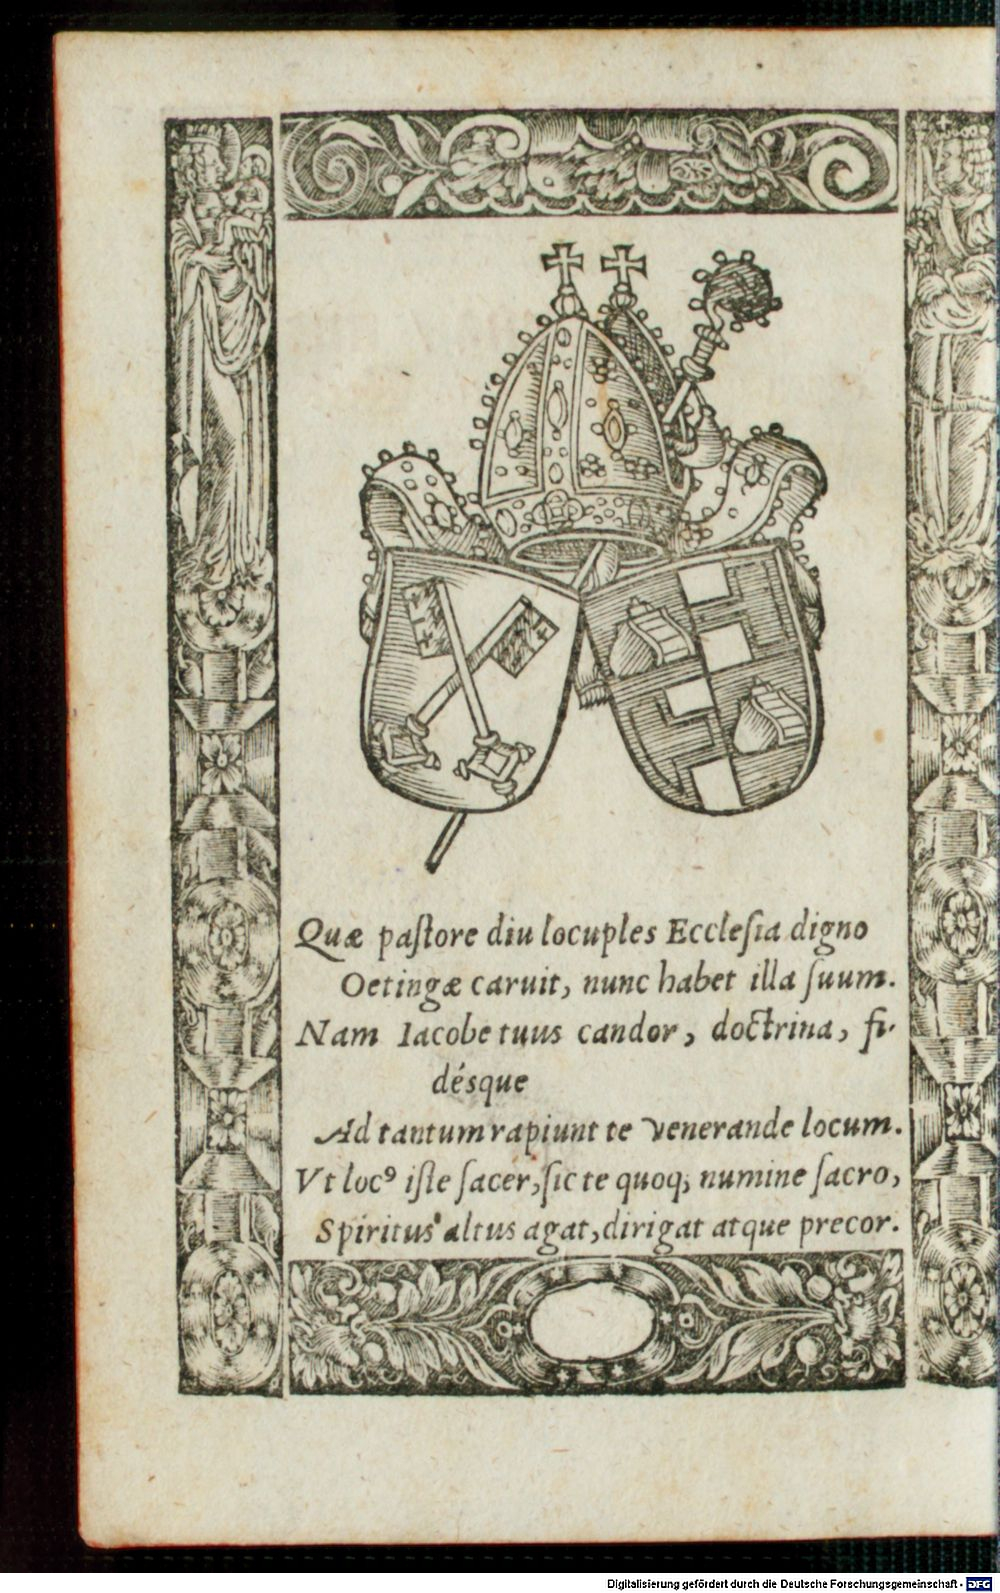 Quæ paſtore diu locuples Eccleſia digno
Oetingæ caruit, nunc habet illa ſuum.
Nam Iacobe tuus candor, doctrina, fi-
désque
Ad tantum rapiunt te venerande locum.
Vt locꝰ iſte ſacer, ſic te quoq; numine ſacro,
Spiritus altus agat, dirigat atque precor.
Digitalisierung gefördert durch die Deutsche Forschungsgemeinschaft - DFG